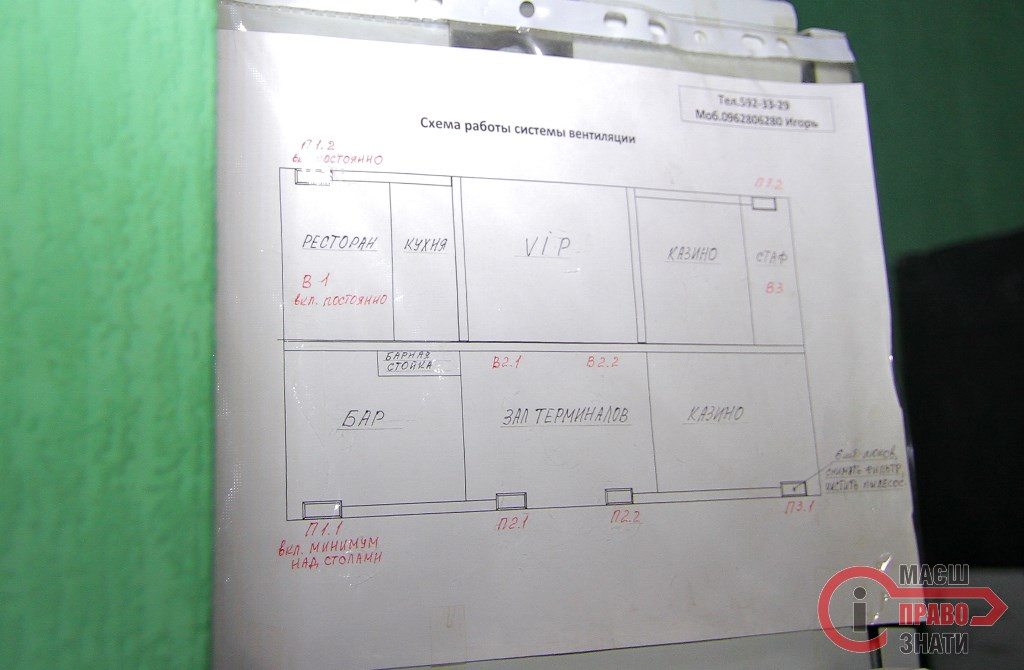 Тел.592-33-29
Моб.0962806280 Игорь
Схема работы системы вентиляции
П1.2
вкл. постоянно
П3.2
РЕСТОРАН
КУХНЯ
VIP
КАЗИНО
СТАФ
В1
вкл. постоянно
В3
БАРНАЯ
СТОЙКА
В2.1
В2.2
БАР
ЗАЛ ТЕРМИНАЛОВ
КАЗИНО
6 шт. люков,
снимать фильтр,
чистить пылесос
П1.1
П2.1
П2.2
П3.1
вкл. МИНИМУМ
НАД СТОЛАМИ
МАЄШ
ПРАВО
ЗНАТИ